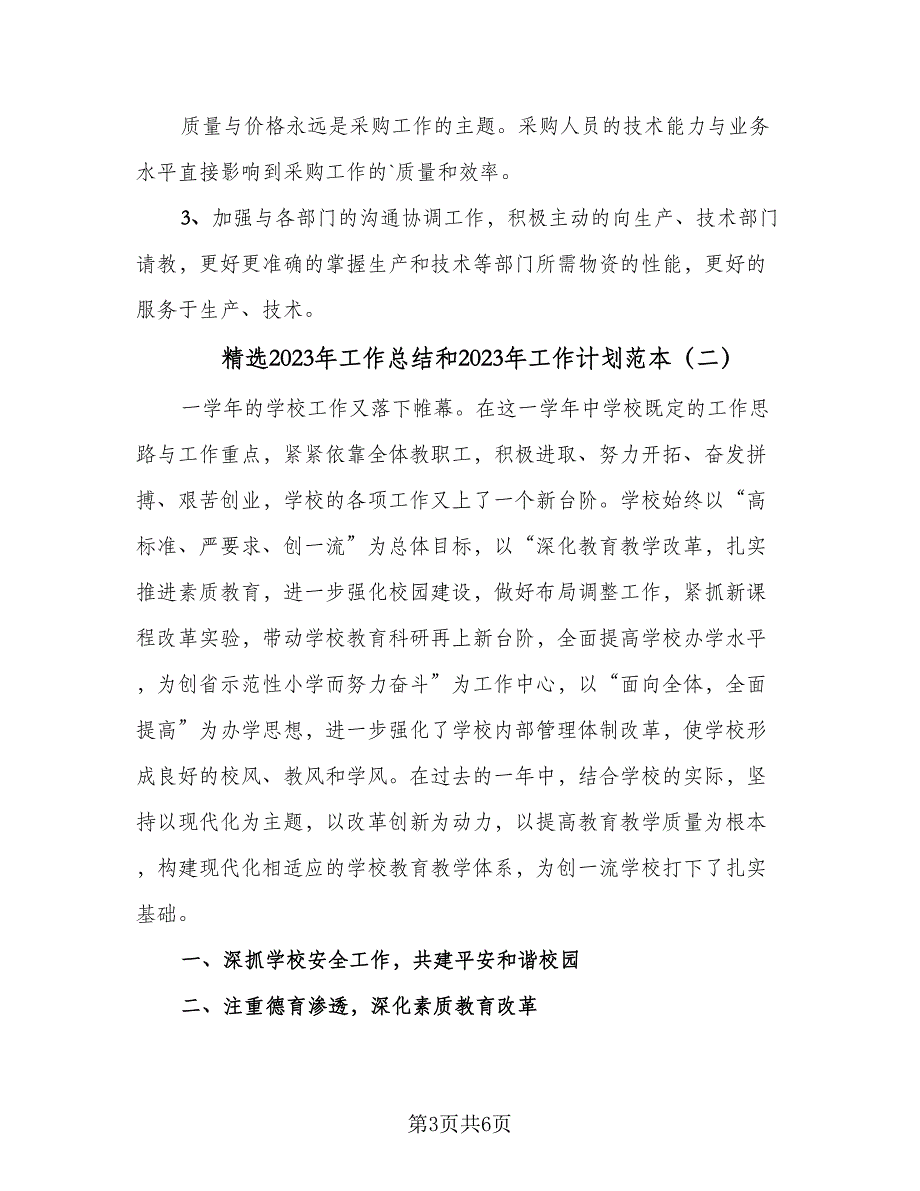 质量与价格永远是采购工作的主题。采购人员的技术能力与业务
水平直接影响到采购工作的`质量和效率。
3、加强与各部门的沟通协调工作，积极主动的向生产、技术部门
请教，更好更准确的掌握生产和技术等部门所需物资的性能，更好的
服务于生产、技术。
精选2023年工作总结和2023年工作计划范本（二）
一学年的学校工作又落下帷幕。在这一学年中学校既定的工作思
路与工作重点，紧紧依靠全体教职工，积极进取、努力开拓、奋发拼
搏、艰苦创业，学校的各项工作又上了一个新台阶。学校始终以“高
标准、严要求、创一流”为总体目标，以“深化教育教学改革，扎实
推进素质教育，进一步强化校园建设，做好布局调整工作，紧抓新课
程改革实验，带动学校教育科研再上新台阶，全面提高学校办学水平
，为创省示范性小学而努力奋斗”为工作中心，以“面向全体，全面
提高”为办学思想，进一步强化了学校内部管理体制改革，使学校形
成良好的校风、教风和学风。在过去的一年中，结合学校的实际，坚
持以现代化为主题，以改革创新为动力，以提高教育教学质量为根本
，构建现代化相适应的学校教育教学体系，为创一流学校打下了扎实
基础。
一、深抓学校安全工作，共建平安和谐校园
二、注重德育渗透，深化素质教育改革
第3页共6页